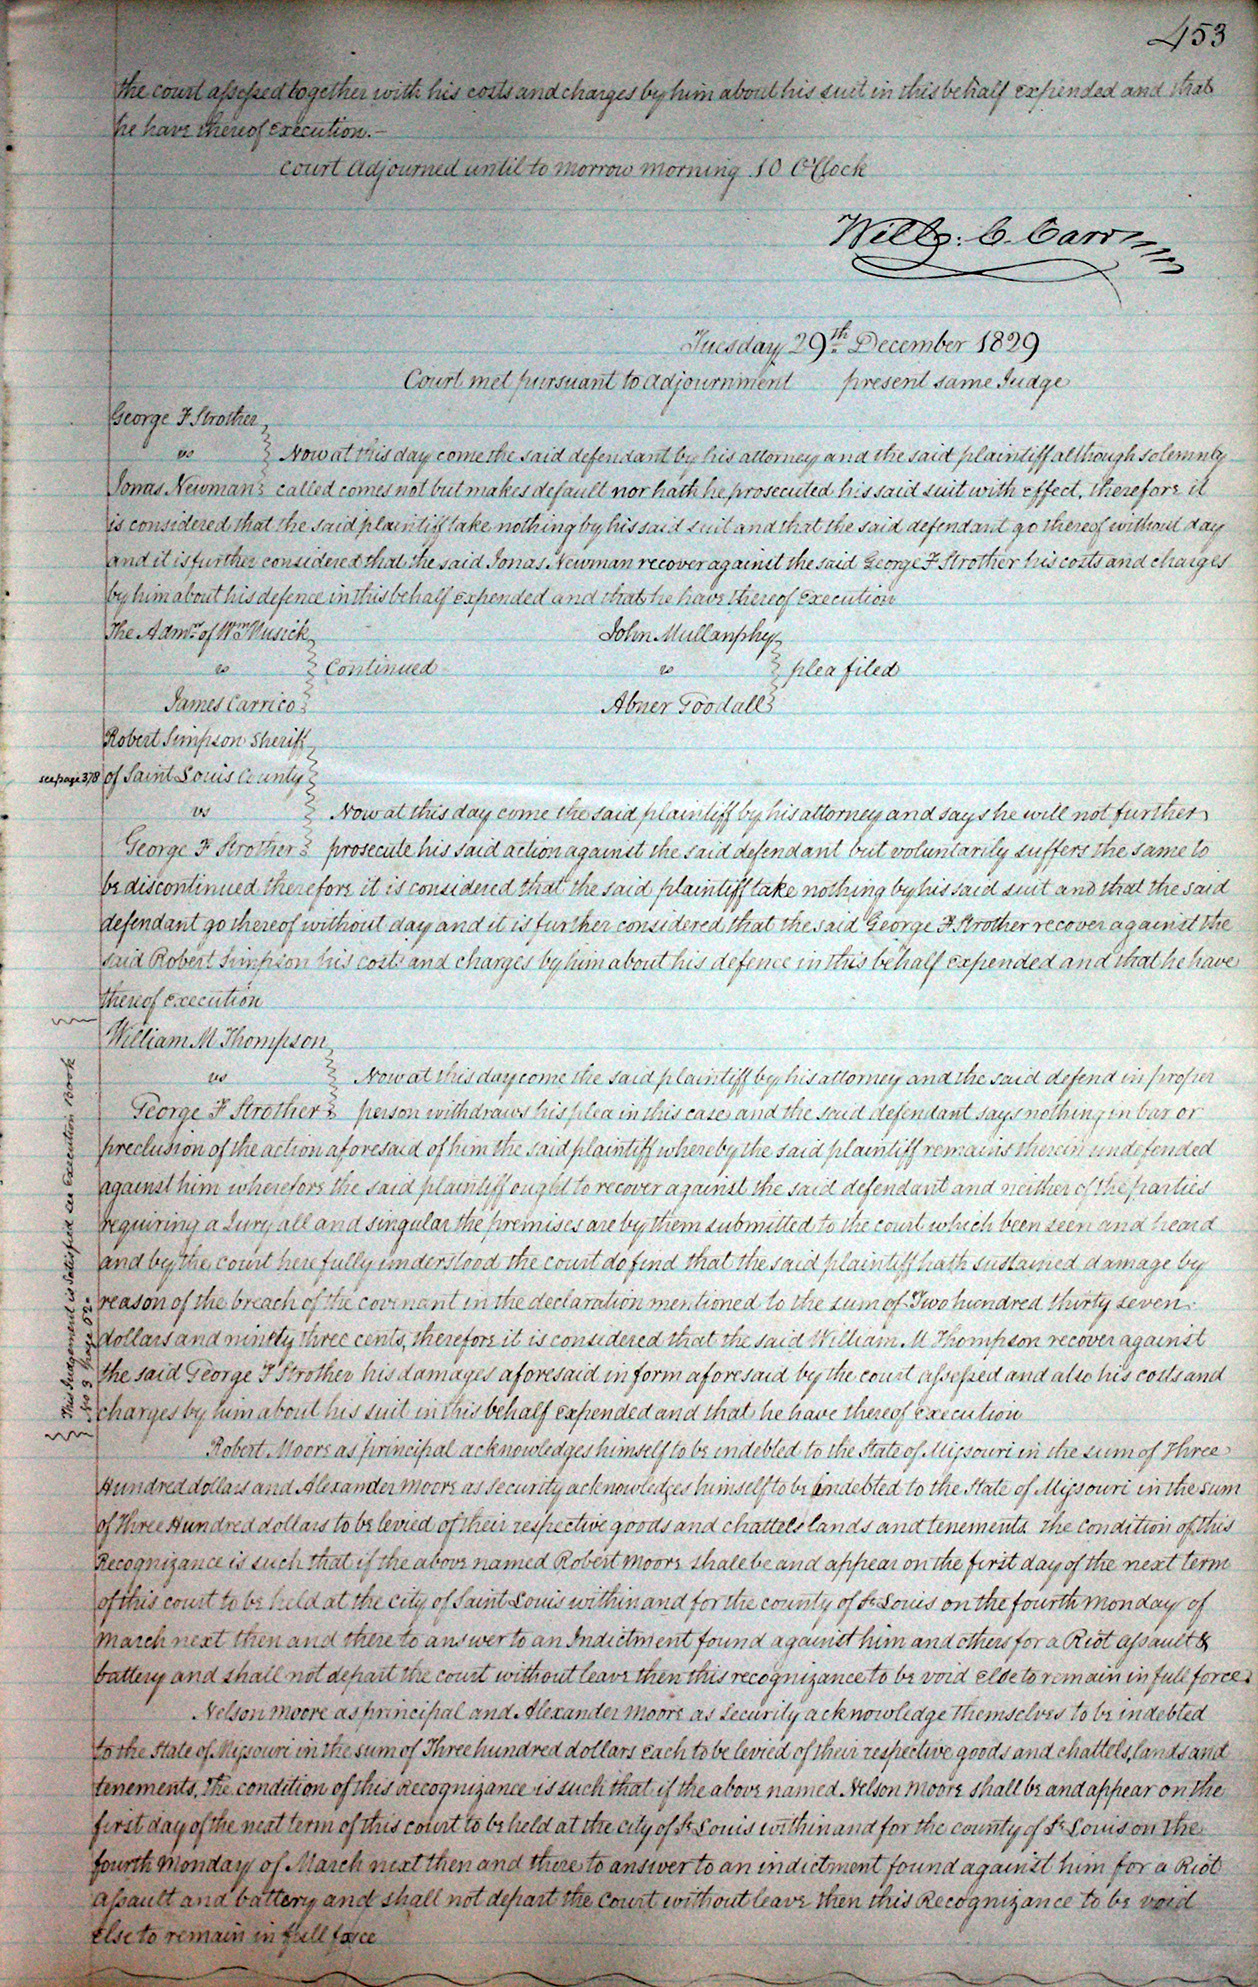 453
the court assessed together with his costs and charges by him about his suit in this behalf expended and that
he have thereof execution.—
Court Adjourned until to morrow morning 10 O'Clock
Will: C. Carr
Tuesday 29th December 1829
Court met pursuant to adjournment present same Judge
George F Strother
vs Now at this day come the said defendant by his attorney and the said plaintiff although solemnly
Jonas Newman called comes not but makes default nor hath he prosecuted his said suit with effect, therefore it
is considered that the said plaintiff take nothing by his said suit and that the said defendant go thereof without day
and it is further considered that the said Jonas Newman recover against the said George F Strother his costs and charges
by him about his defence in this behalf expended and that he have thereof execution
The Admr of Wm Musick John Mullanphy
vs Continued vs plea filed
James Carrico Abner Goodall
Robert Simpson Sheriff
see page 378 of Saint Louis County
vs Now at this day come the said plaintiff by his attorney and says he will not further
George F Strother prosecute his said action against the said defendant but voluntarily suffers the same to
be discontinued therefore it is considered that the said plaintiff take nothing by his said suit and that the said
defendant go thereof without day and it is further considered that the said George F Strother recover against the
said Robert Simpson his costs and charges by him about his defence in this behalf expended and that he have
thereof execution
William M Thompson
vs Now at this day come the said plaintiff by his attorney and the said defend in proper
George F Strother person withdraws his plea in this case and the said defendant says nothing in bar or
preclusion of the action aforesaid of him the said plaintiff whereby the said plaintiff remains therein undefended
against him wherefore the said plaintiff ought to recover against the said defendant and neither of the parties
requiring a Jury all and singular the premises are by them submitted to the court which been seen and heard
and by the court here fully understood the court do find that the said plaintiff hath sustained damage by
reason of the breach of the covenant in the declaration mentioned to the sum of Two hundred thirty seven
dollars and ninety three cents, therefore it is considered that the said William M Thompson recover against
the said George F Strother his damages aforesaid in form aforesaid by the court assessed and also his costs and
charges by him about his suit in this behalf expended and that he have thereof execution
This Judgement is Satisfied see Execution Book
No 3 page 52
Robert Moore as principal acknowledges himself to be indebted to the State of Missouri in the sum of Three
Hundred dollars and Alexander Moore as Security acknowledges himself to be indebted to the State of Missouri in the sum
of Three Hundred dollars to be levied of their respective goods and chattels lands and tenements The Condition of this
Recognizance is such that if the above named Robert Moore shall be and appear on the first day of the next term
of this court to be held at the city of Saint Louis within and for the county of St Louis on the fourth Monday of
March next then and there to answer to an Indictment found against him and others for a Riot assault &
battery and shall not depart the court without leave then this recognizance to be void else to remain in full force
Nelson Moore as principal and Alexander Moore as Security acknowledge themselves to be indebted
to the State of Missouri in the sum of Three hundred dollars each to be levied of their respective goods and chattels, lands and
tenements, The condition of this Recognizance is such that if the above named Nelson Moore shall be and appear on the
first day of the next term of this court to be held at the city of St Louis within and for the county of St Louis on the
fourth Monday of March next then and there to answer to an indictment found against him for a Riot
assault and battery and shall not depart the Court without leave then this Recognizance to be void
else to remain in full force